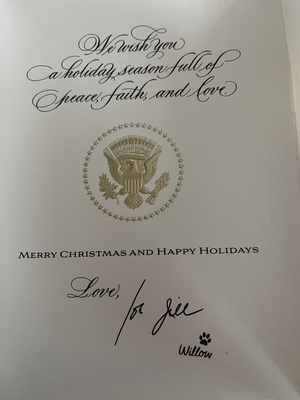 We wish you
a holiday season full of
peace, faith, and love
MERRY CHRISTMAS AND HAPPY HOLIDAYS
Love,
Joe Jill
Willow